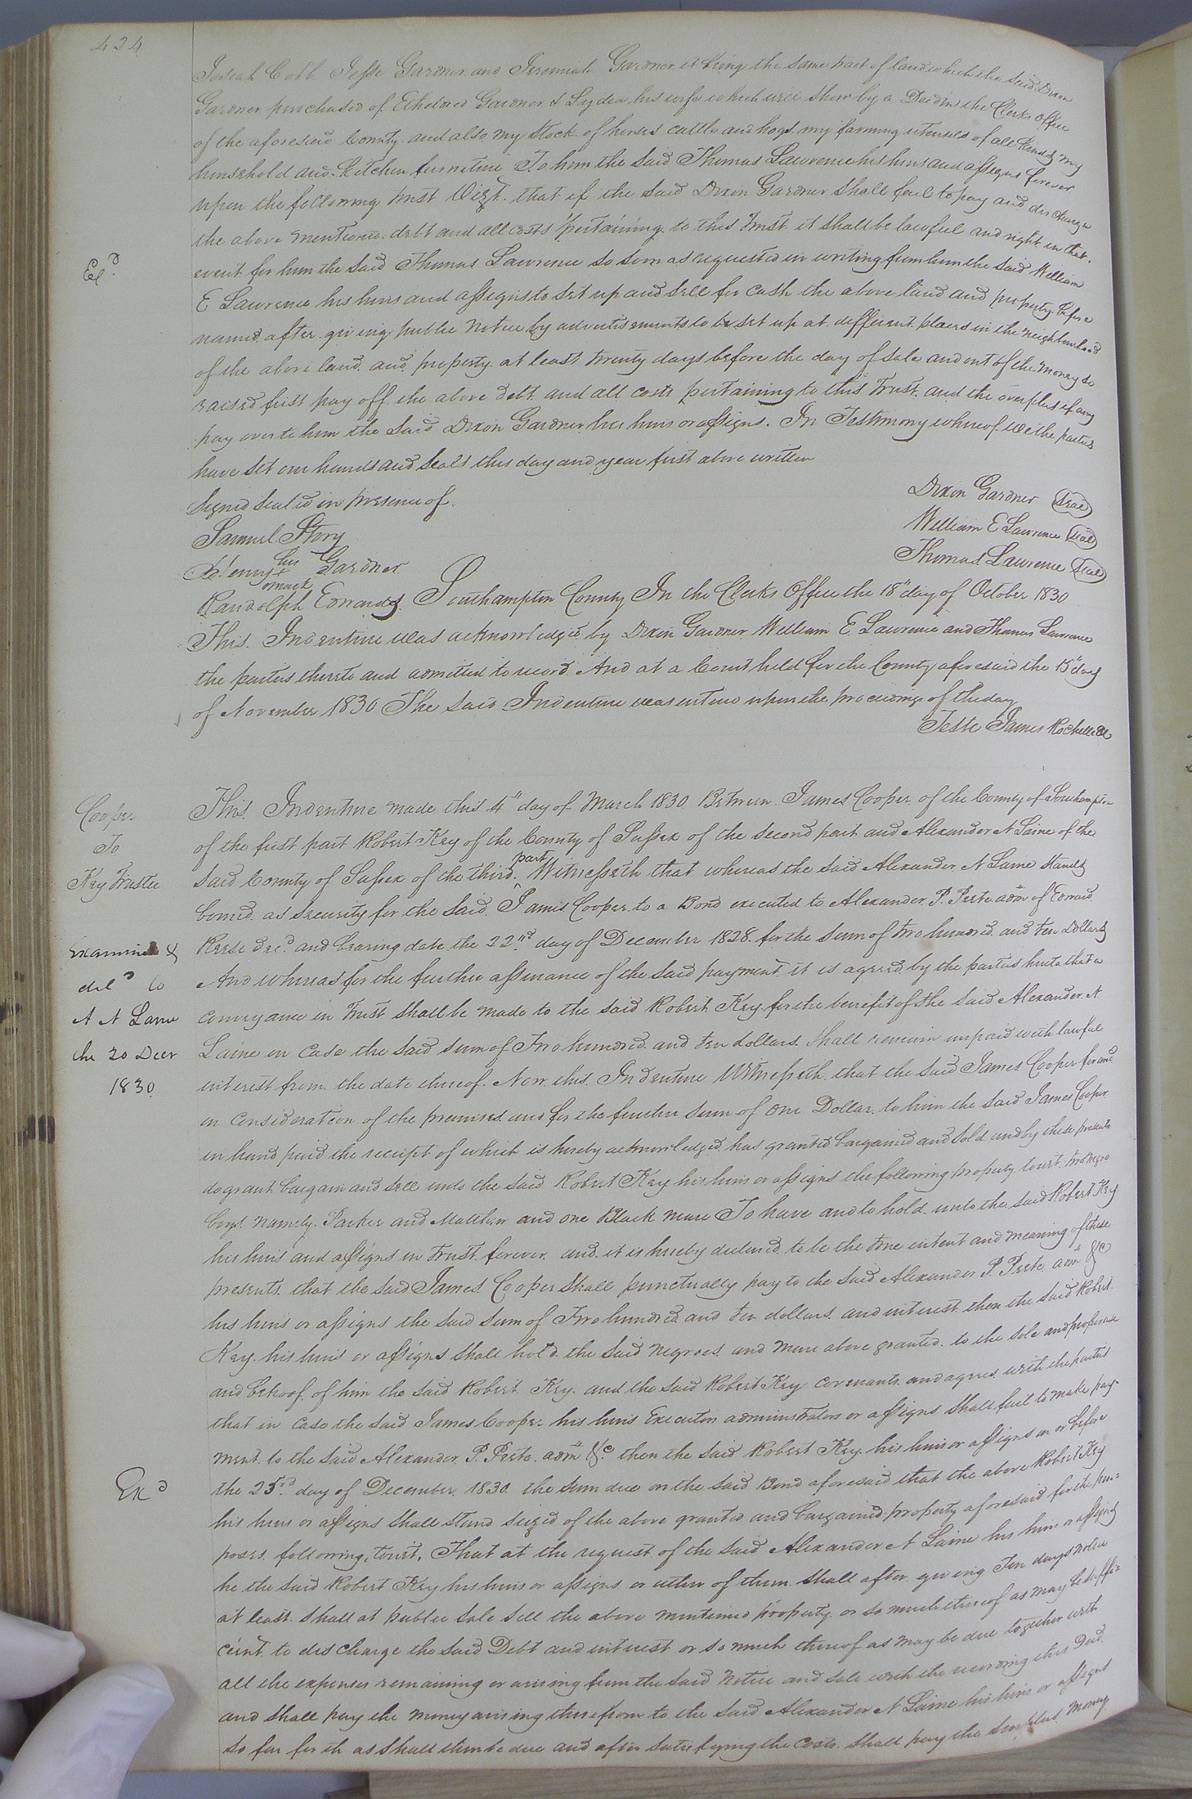 424
Josiah Cobb Jesse Gardner and Jeremiah Gardner it being the same part of land which the said Dixon
Gardner purchased of Etheldred Gardner & Lydia his wife which will show by a Deed in the Clerks Office
of the aforesaid County and also my Stock of horses cattle and hogs my farming utensels of all kinds my
household and Kitchen furniture To him the said Thomas Lawrence his heirs and assigns forever
upon the following trust Vizt. that if the said Dixon Gardner Shall fail to pay and discharge
the above mentioned debt and all costs pertaining to this trust it shall be lawful and right in that
Ex.d
event for him the said Thomas Lawrence so soon as requested in writing from him the said William
E Lawrence his heirs and assigns to set up and sell for cash the above land and property before
named after giving public notice by advertisements to be set up at different places in the neighbourhood
of the above land and property at least twenty days before the day of sale and out of the money so
raised first pay off the above debt and all costs pertaining to this trust and the overplus if any
pay over to him the said Dixon Gardner his heirs or assigns. In Testimony whereof We the parties
have set our hands and seals this day and year first above written
Signed Sealed in presence of
Dixon Gardner (Seal)
Samuel Story
William E Lawrence (Seal)
Henry his + mark Gardner
Thomas Lawrence (Seal)
Randolph Edwards
Southampton County In the Clerks Office the 18" day of October 1830
This Indenture was acknowledged by Dixon Gardner William E Lawrence and Thomas Lawrence
the parties thereto and admitted to record And at a Court held for the County aforesaid the 15" day
of November 1830 The said Indenture was entered upon the proceedings of the day
Teste James Rochelle Cl
Cooper
To
Key Trustee
This Indenture made this 4" day of March 1830 Between James Cooper of the County of Southampton
of the first part Robert Key of the County of Sussex of the second part and Alexander N Laine of the
said County of Sussex of the third part Witnesseth that whereas the said Alexander N Laine Stands
bound as security for the said James Cooper to a Bond executed to Alexander P. Peete adm of Edward
Examined &
deld to
A N Laine
the 20 Decr
1830
Peete decd and bearing date the 22nd day of December 1828 for the sum of two hundred and ten dollars
And whereas for the further assurance of the said payment it is agreed by the parties hereto that a
conveyance in Trust Shall be made to the said Robert Key for the benefit of the said Alexander N
Laine in case the said sum of Two hundred and ten dollars Shall remain unpaid with lawful
interest from the date thereof. Now this Indenture Witnesseth that the said James Cooper for and
in Consideration of the premises and for the further sum of One Dollar to him the said James Cooper
in hand paid the receipt of which is hereby acknowledged has granted bargained and sold and by these presents
do grant bargain and sell unto the said Robert Key his heirs or assigns the following property towit, two negro
boys namely Parker and Matthew and one Black mare To have and to hold unto the said Robert Key
his heirs and assigns in trust forever and it is hereby declared to be the true intent and meaning of these
presents that the said James Cooper Shall punctually pay to the said Alexander P Peete adm &c
his heirs or assigns the said sum of Two hundred and ten dollars and interest then the said Robert
Key his heirs or assigns shall hold the said negroes and mare above granted to the sole and proper use
and behoof of him the said Robert Key and the said Robert Key covenants and agrees with the parties
that in case the said James Cooper his heirs Executors administrators or assigns shall fail to make pay-
ment to the said Alexander P. Peete adm &c then the said Robert Key his heirs or assigns on or before
Exd
the 25th day of December 1830 the sum due on the said Bond aforesaid that the above Robert Key
his heirs or assigns shall stand seized of the above granted and bargained property aforesaid for the pur=
poses following, towit, That at the request of the said Alexander N Laine his heirs or assigns
he the said Robert Key his heirs or assigns or either of them shall after giving Ten days notice
at least shall at public sale sell the above mentioned property or so much thereof as may be suffi-
cient to discharge the said Debt and interest or so much thereof as may be due together with
all the expenses remaining or arising from the said Notice and sale with the recording this Deed
and shall pay the money arising therefrom to the said Alexander N Laine his heirs or assigns
so far forth as shall then be due and after satisfying the costs shall pay the surplus money